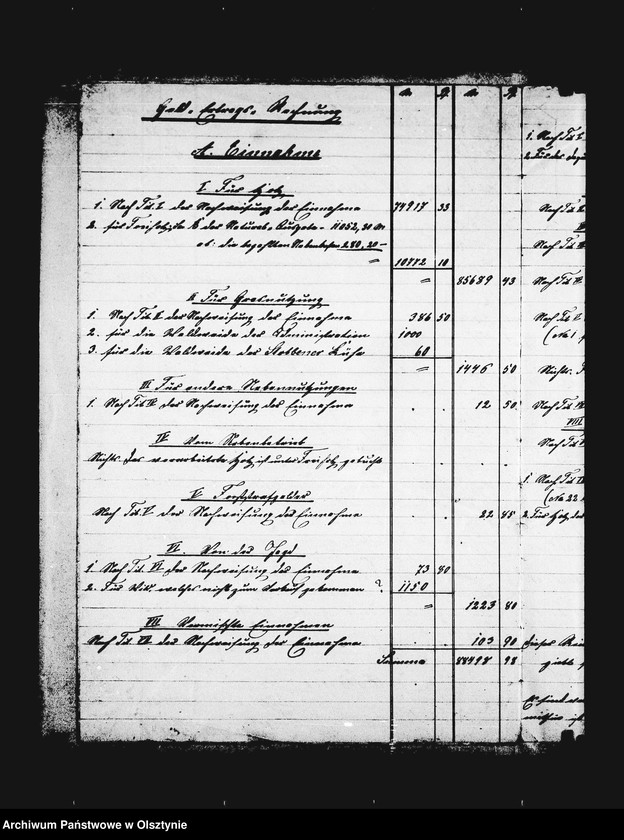 Geld-Ertrags-Rechnung
A. Einnahme
M ₰ M ₰
I Für Holz
1. Nach Tit. I. der Nachweisung der Einnahme 74917 33
2. für Freiholz der Natural-Ausgabe - 11052,30 M
ab: die bezahlten Nebenkosten 280,20 -
= 10772 10
= 85689 43
II Für Grasnutzung
1. Nach Tit. II der Nachweisung der Einnahme 386 50
2. für die Waldweide der Administration 1000
3. für die Waldweide der Stobbener Kühe 60
= 1446 50
III Für andere Nebennutzungen
1. Nach Tit. III der Nachweisung der Einnahme . . 12 50
IV Vom Nebenbetrieb
Nichts. Das verarbeitete Holz ist unter Freiholz gebucht . . . .
V Forststrafgelder
Nach Tit. V der Nachweisung der Einnahme . . 22 85
VI. Von der Jagd
1. Nach Tit. VI der Nachweisung der Einnahme 73 80
2. Für Wild, welches nicht zum Verkauf gekommen ? 1150
= 1223 80
VII Vermischte Einnahmen
Nach Tit. VII der Nachweisung der Einnahme . . 103 90
Summa 88498 98
1. Nach Tit. I.
2. Für
Nach Tit. II
Nach Tit. III
Nach Tit. IV
Nach Tit. V
(No 1
Nichts.
Nach Tit.
VIII
Nach Tit.
1. Nach Tit. IX
(No 22
2. Für Holz
Archiwum Państwowe w Olsztynie